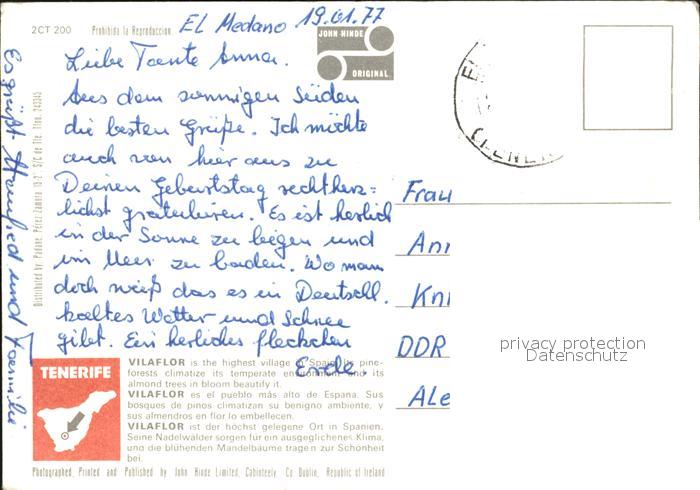 2CT 200 Prohibida la Reproduccion
EL Medano 19.01.77
JOHN HINDE
ORIGINAL
Liebe Tante Anna.
Aus dem sonnigen Süden
die besten Grüße. Ich möchte
auch von hier aus zu
Deinen Geburtstag rechtherz=
lichst gratulieren. Es ist herlich
in der Sonne zu liegen und
im Meer zu baden. Wo man
doch weiß das es in Deutschl.
kaltes Wetter und Schnee
gibt. Ein herliches fleckchen
Erde.
Es grüßt Manfred und Familie
Distributed by Padane, Perez Zamora 13-2° S/C de Tfe. Tfno. 243345
Frau
An
Kn
DDR
ALe
privacy protection
Datenschutz
TENERIFE
VILAFLOR is the highest village in Spain. Its pine-
forests climatize its temperate environment and its
almond trees in bloom beautify it.
VILAFLOR es el pueblo más alto de Espana. Sus
bosques de pinos climatizan su benigno ambiente, y
sus almendros en flor lo embellecen.
VILAFLOR ist der höchst gelegene Ort in Spanien.
Seine Nadelwälder sorgen für ein ausgeglichenes Klima,
und die blühenden Mandelbäume tragen zur Schönheit
bei.
Photographed, Printed and Published by John Hinde Limited, Cabinteely, Co Dublin, Republic of Ireland